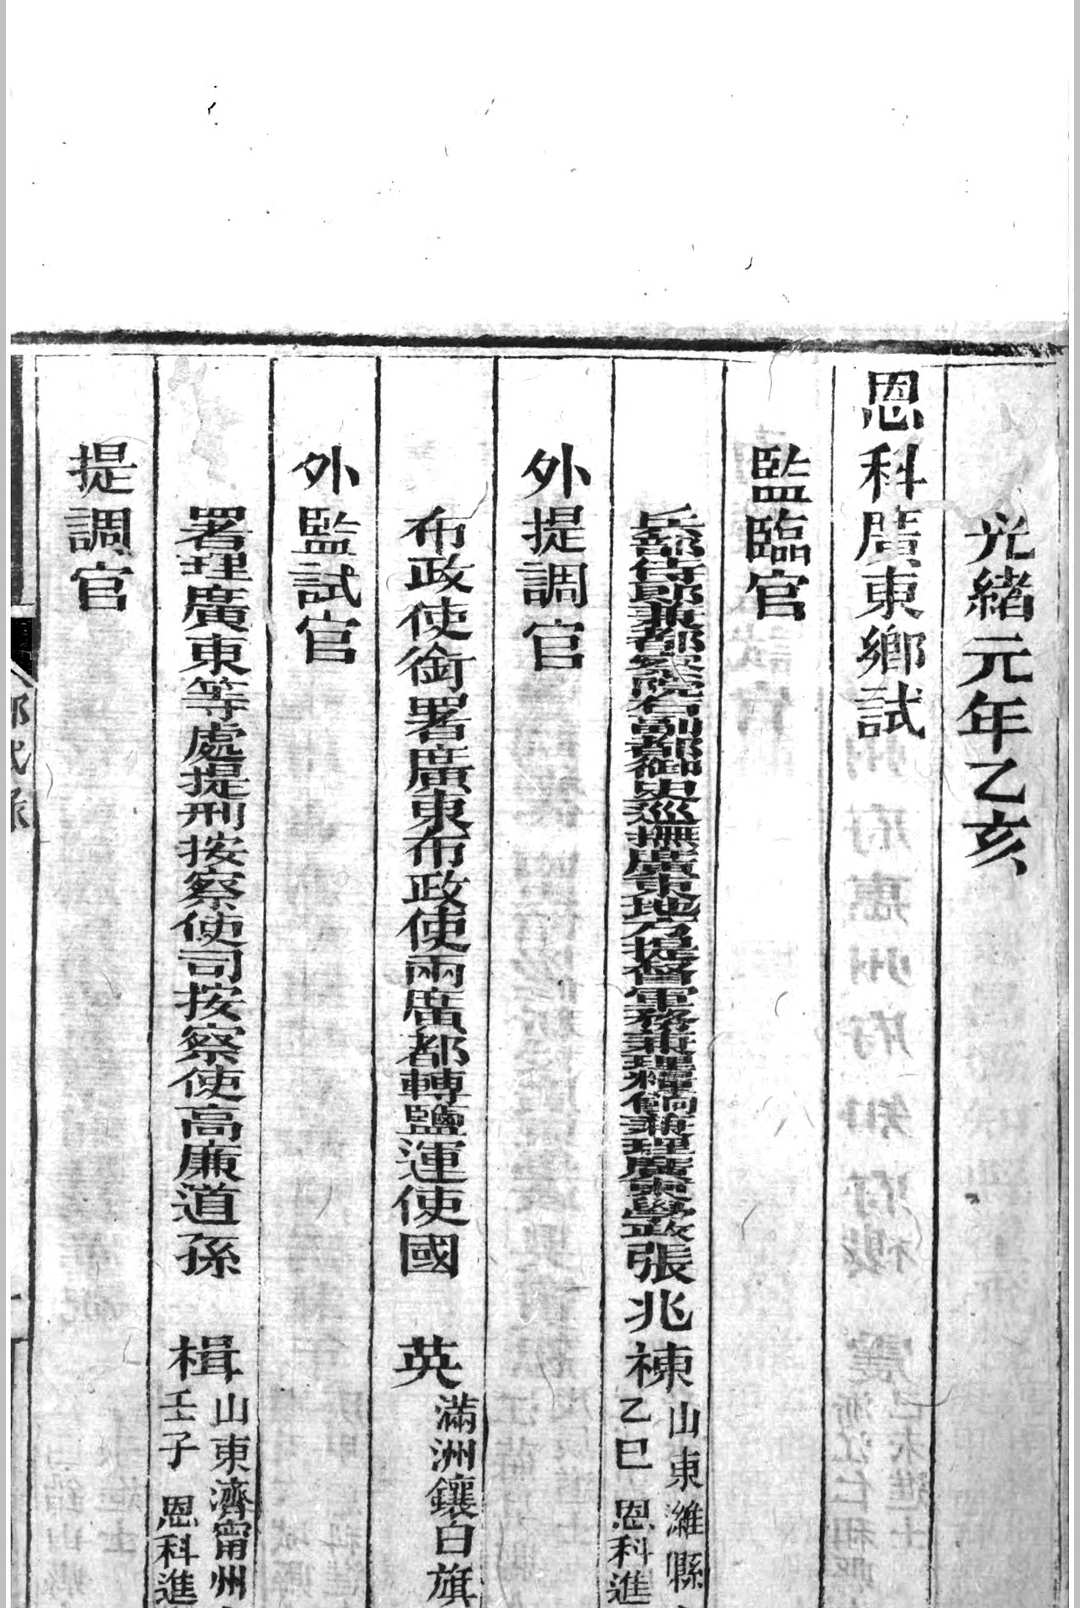 光緒元年乙亥
恩科廣東鄉試
監臨官
兵部侍郎兼都察院右副都御史巡撫廣東地方提督軍務兼理糧餉兼理廣東學政張兆棟山東濰縣
乙巳 恩科進
外提調官
布政使銜署廣東布政使兩廣都轉鹽運使國 英滿洲鑲白旗
外監試官
署理廣東等處提刑按察使司按察使高廉道孫 楫山東濟甯州
壬子 恩科進
提調官